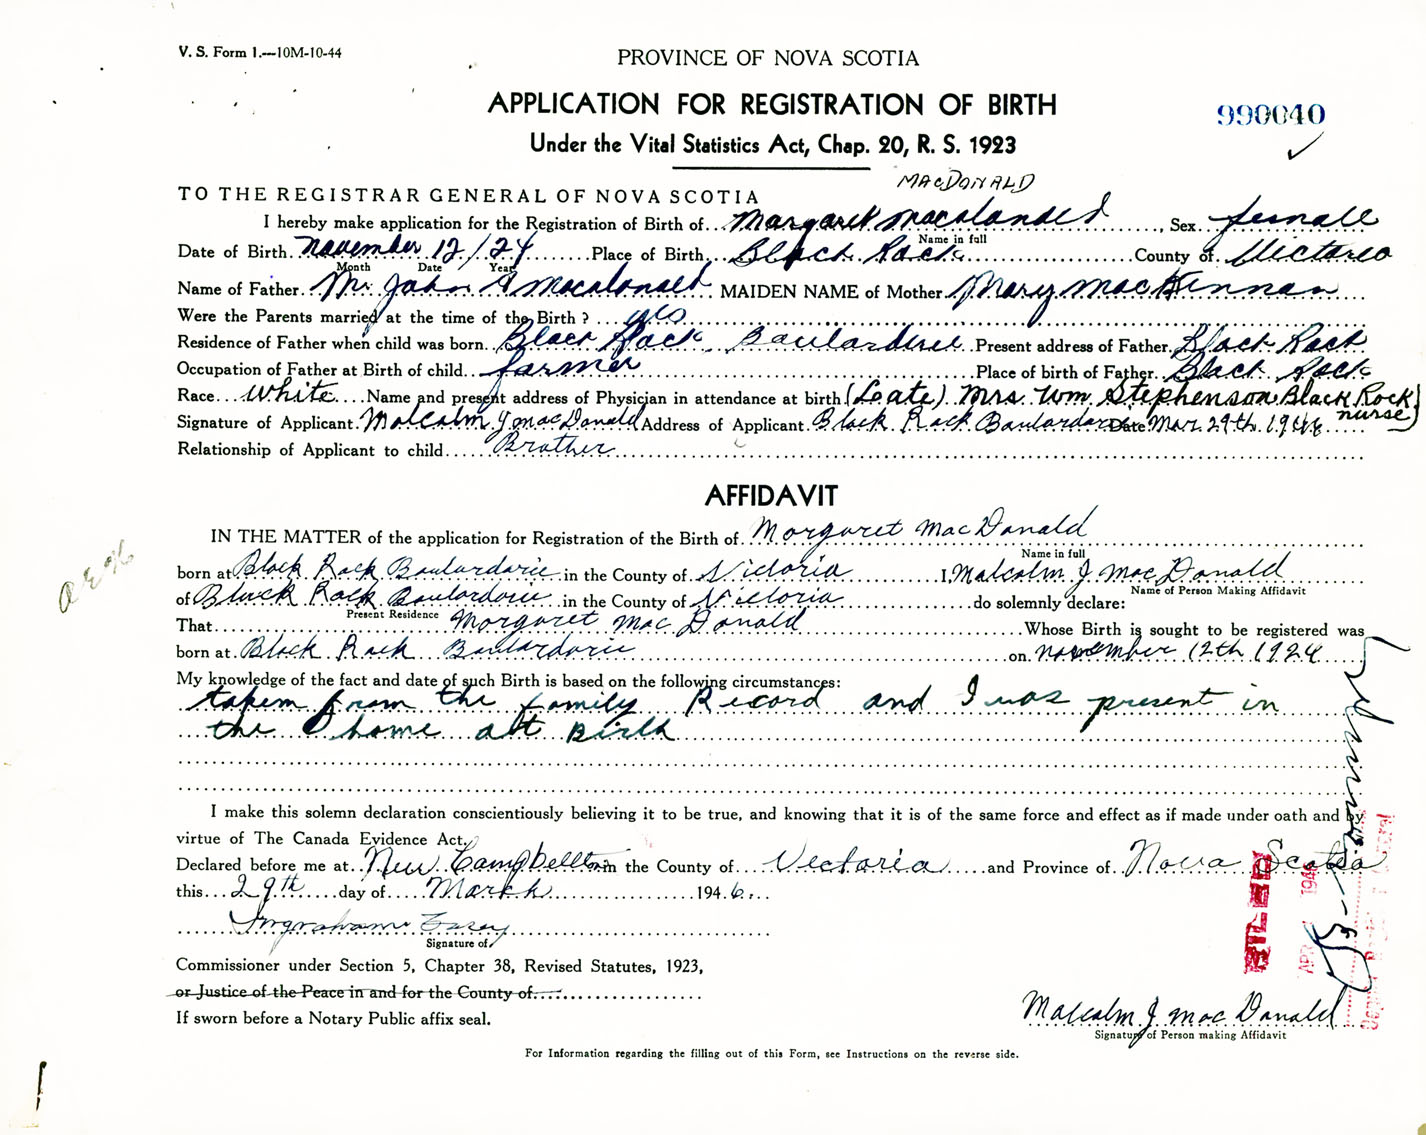 V. S. Form 1.—10M-10-44
PROVINCE OF NOVA SCOTIA
APPLICATION FOR REGISTRATION OF BIRTH
990040
Under the Vital Statistics Act, Chap. 20, R. S. 1923
MACDONALD
TO THE REGISTRAR GENERAL OF NOVA SCOTIA
I hereby make application for the Registration of Birth of Margaret Macdonald, Sex female
Name in full
Date of Birth November 12/24 Place of Birth Black Rock County of Victoria
Month Date Year
Name of Father Mr John Macdonald MAIDEN NAME of Mother Mary MacKinnan
Were the Parents married at the time of the Birth? yes
Residence of Father when child was born Black Rock Boularderie Present address of Father Black Rock
Occupation of Father at Birth of child farmer Place of birth of Father Black Rock
Race White Name and present address of Physician in attendance at birth (Late) Mrs. Wm Stephenson Black Rock
nurse)
Signature of Applicant Malcolm J MacDonald Address of Applicant Black Rock Boularderie Date Mar 29th 1946
Relationship of Applicant to child Brother
AFFIDAVIT
IN THE MATTER of the application for Registration of the Birth of Morgaret MacDonald
Name in full
born at Black Rock Boulardarie in the County of Victoria I, Malcolm J MacDonald
Name of Person Making Affidavit
of Black Rock Boulardarie in the County of Victoria do solemnly declare:
Present Residence
That Morgaret MacDonald Whose Birth is sought to be registered was
born at Black Rock Boulardarie on November 12th 1924
My knowledge of the fact and date of such Birth is based on the following circumstances:
taken from the family Record and I was present in
the home at Birth
I make this solemn declaration conscientiously believing it to be true, and knowing that it is of the same force and effect as if made under oath and by
virtue of The Canada Evidence Act.
Declared before me at New Campbellton in the County of Victoria and Province of Nova Scotia
this 29th day of March 1946.
Signature of
Commissioner under Section 5, Chapter 38, Revised Statutes, 1923,
or Justice of the Peace in and for the County of
If sworn before a Notary Public affix seal.
Malcolm J MacDonald
Signature of Person making Affidavit
For Information regarding the filling out of this Form, see Instructions on the reverse side.
FILED
APR 1946